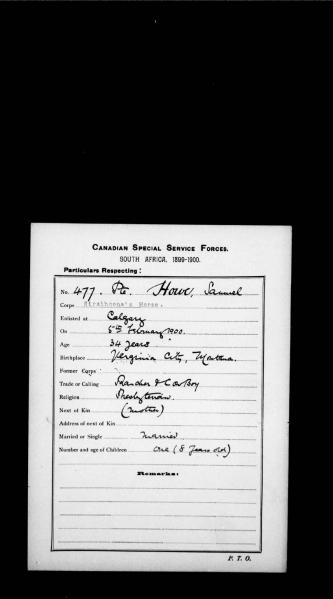 CANADIAN SPECIAL SERVICE FORCES.
SOUTH AFRICA, 1899-1900.
Particulars Respecting:
No. 477. Pte. Howe, Samuel
Corps Strathcona's Horse.
Enlisted at Calgary
On 5th February 1900.
Age 34 years
Birthplace Verginia City, Mattana.
Former Corps
Trade or Calling Rancher & CowBoy
Religion Presbyterian.
Next of Kin (mother)
Address of next of Kin
Married or Single married
Number and age of Children one (8 years old)
Remarks:
P. T. O.